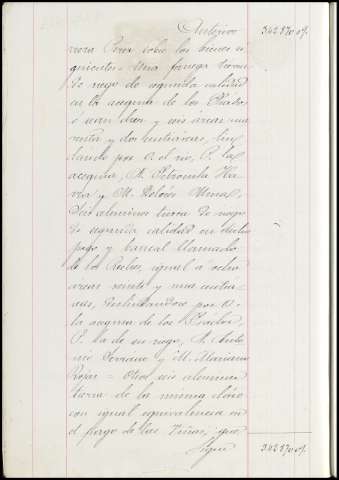 Anterior 342.870.09.
nora Perez sobre los bienes si
guientes = Una fanega tierra
de riego de segunda calidad
en la acequia de los
ó sean diez y seis áreas una
renta y dos centiáreas, lin
dando por S. el rio, P. la
acequia, N. Petronila
y M. Dolores
Seis celemines tierra de riego
de segunda calidad en dicho
pago y bancal llamado
de los igual á ocho
áreas veinte y una centiá
reas, deslindandose por S.
la acequia de los
P. la de su riego, N. Anto
nio Serrano y M. Mariano
Rojas = Otros seis celemines
tierra de la misma clase
con igual equivalencia en
el pargo de las Viñas, que
Sigue 342.870.09.